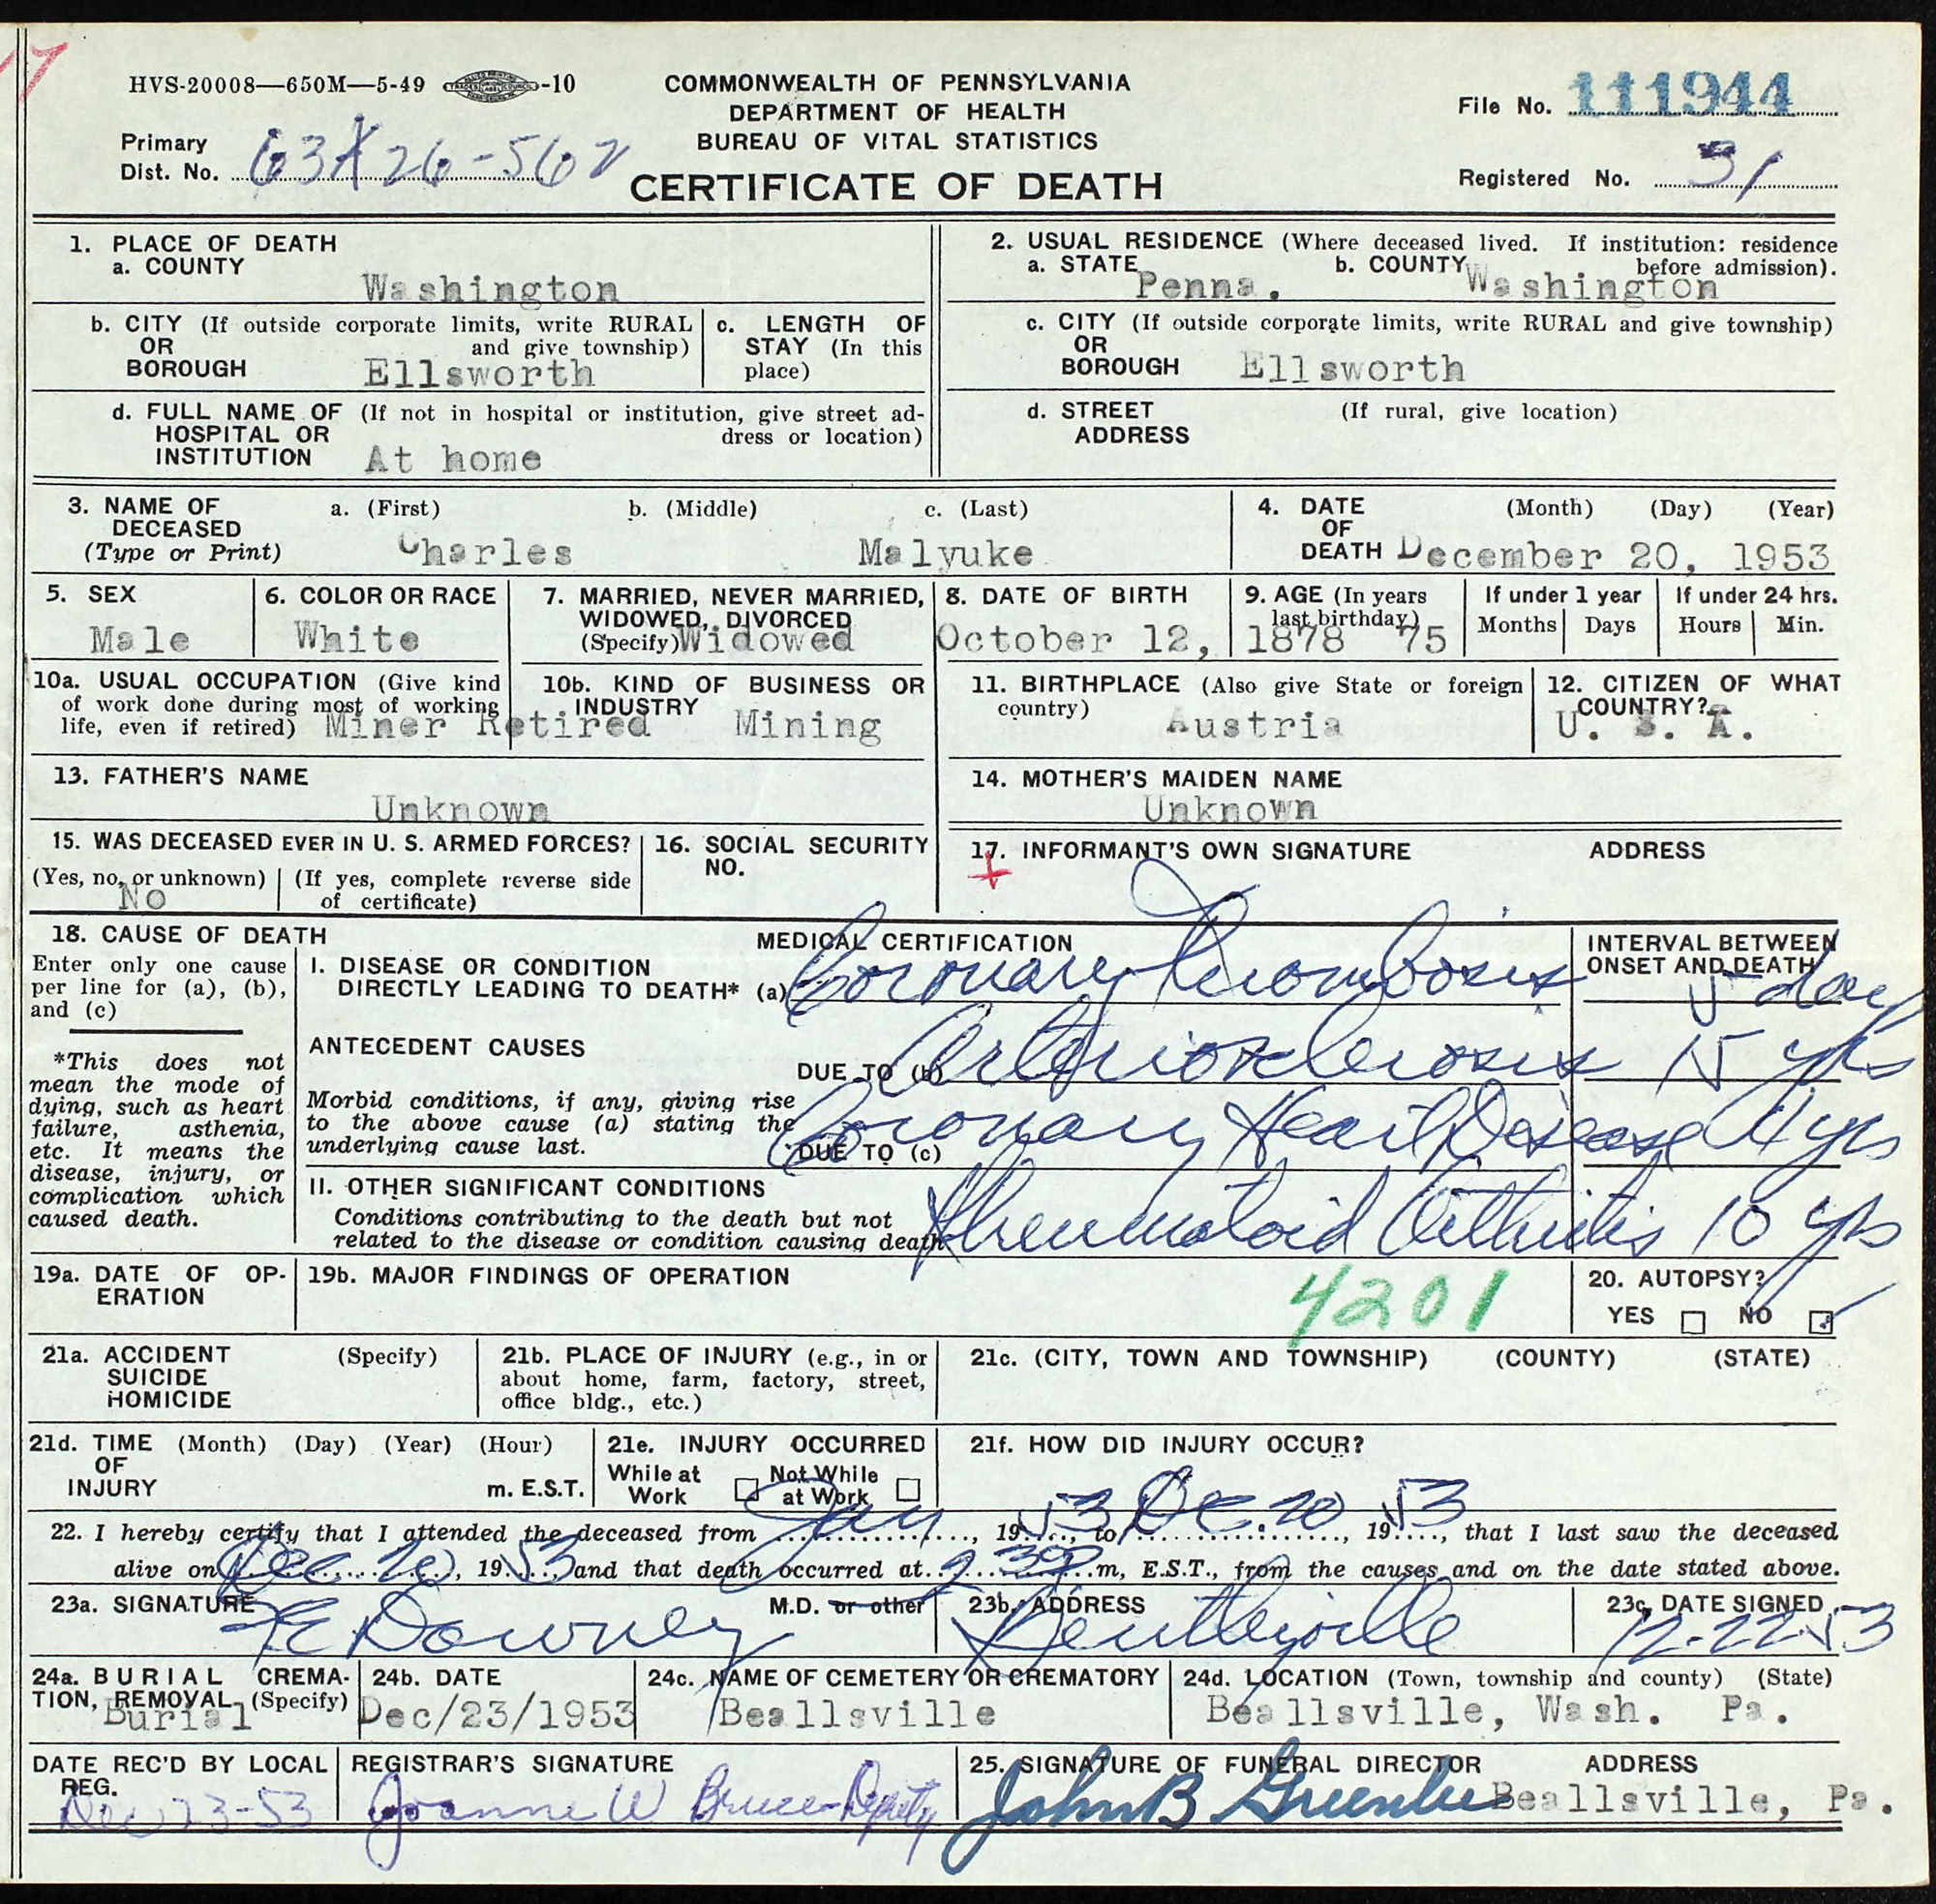 HVS-20008—650M—5-49 -10
COMMONWEALTH OF PENNSYLVANIA
DEPARTMENT OF HEALTH
BUREAU OF VITAL STATISTICS
CERTIFICATE OF DEATH
File No. 111944
Primary
Dist. No. 63X26-562
Registered No. 31
1. PLACE OF DEATH
a. COUNTY
Washington
2. USUAL RESIDENCE (Where deceased lived. If institution: residence before admission).
a. STATE Penna. b. COUNTY Washington
b. CITY (If outside corporate limits, write RURAL
OR and give township)
BOROUGH Ellsworth
c. LENGTH OF
STAY (In this
place)
c. CITY (If outside corporate limits, write RURAL and give township)
OR
BOROUGH Ellsworth
d. FULL NAME OF (If not in hospital or institution, give street ad-
HOSPITAL OR dress or location)
INSTITUTION At home
d. STREET (If rural, give location)
ADDRESS
3. NAME OF a. (First) b. (Middle) c. (Last)
DECEASED
(Type or Print) Charles Malyuke
4. DATE (Month) (Day) (Year)
OF
DEATH December 20, 1953
5. SEX
Male
6. COLOR OR RACE
White
7. MARRIED, NEVER MARRIED,
WIDOWED, DIVORCED
(Specify) Widowed
8. DATE OF BIRTH
October 12, 1878
9. AGE (In years
last birthday)
75
If under 1 year
Months Days
If under 24 hrs.
Hours Min.
10a. USUAL OCCUPATION (Give kind
of work done during most of working
life, even if retired) Miner Retired
10b. KIND OF BUSINESS OR
INDUSTRY
Mining
11. BIRTHPLACE (Also give State or foreign
country)
Austria
12. CITIZEN OF WHAT
COUNTRY?
U. S. A.
13. FATHER'S NAME
Unknown
14. MOTHER'S MAIDEN NAME
Unknown
15. WAS DECEASED EVER IN U. S. ARMED FORCES?
(Yes, no, or unknown) (If yes, complete reverse side
No of certificate)
16. SOCIAL SECURITY
NO.
17. INFORMANT'S OWN SIGNATURE ADDRESS
18. CAUSE OF DEATH
Enter only one cause
per line for (a), (b),
and (c)
*This does not
mean the mode of
dying, such as heart
failure, asthenia,
etc. It means the
disease, injury, or
complication which
caused death.
MEDICAL CERTIFICATION
INTERVAL BETWEEN
ONSET AND DEATH
I. DISEASE OR CONDITION
DIRECTLY LEADING TO DEATH* (a) Coronary Thrombosis 5 day
ANTECEDENT CAUSES
DUE TO (b) Arteriosclerosis 15 yrs
Morbid conditions, if any, giving rise
to the above cause (a) stating the
underlying cause last.
DUE TO (c) Coronary Heart Disease 4 yrs
II. OTHER SIGNIFICANT CONDITIONS
Conditions contributing to the death but not
related to the disease or condition causing death.
Rheumatoid Arthritis 10 yrs
19a. DATE OF OP-
ERATION
19b. MAJOR FINDINGS OF OPERATION
4201
20. AUTOPSY?
YES NO
21a. ACCIDENT (Specify)
SUICIDE
HOMICIDE
21b. PLACE OF INJURY (e.g., in or
about home, farm, factory, street,
office bldg., etc.)
21c. (CITY, TOWN AND TOWNSHIP) (COUNTY) (STATE)
21d. TIME (Month) (Day) (Year) (Hour)
OF
INJURY m. E.S.T.
21e. INJURY OCCURRED
While at Work Not While at Work
21f. HOW DID INJURY OCCUR?
22. I hereby certify that I attended the deceased from Jan, 1953, to Dec 20, 1953, that I last saw the deceased
alive on Dec 20, 1953 and that death occurred at 2 30 P m, E.S.T., from the causes and on the date stated above.
23a. SIGNATURE M.D. or other
Downey
23b. ADDRESS
Bentleyville
23c. DATE SIGNED
12-22-53
24a. BURIAL CREMA-
TION, REMOVAL (Specify)
Burial
24b. DATE
Dec/23/1953
24c. NAME OF CEMETERY OR CREMATORY
Beallsville
24d. LOCATION (Town, township and county) (State)
Beallsville, Wash. Pa.
DATE REC'D BY LOCAL
REG.
Dec 23-53
REGISTRAR'S SIGNATURE
Joanne W Bruce-Deputy
25. SIGNATURE OF FUNERAL DIRECTOR ADDRESS
John B Greenlee Beallsville, Pa.